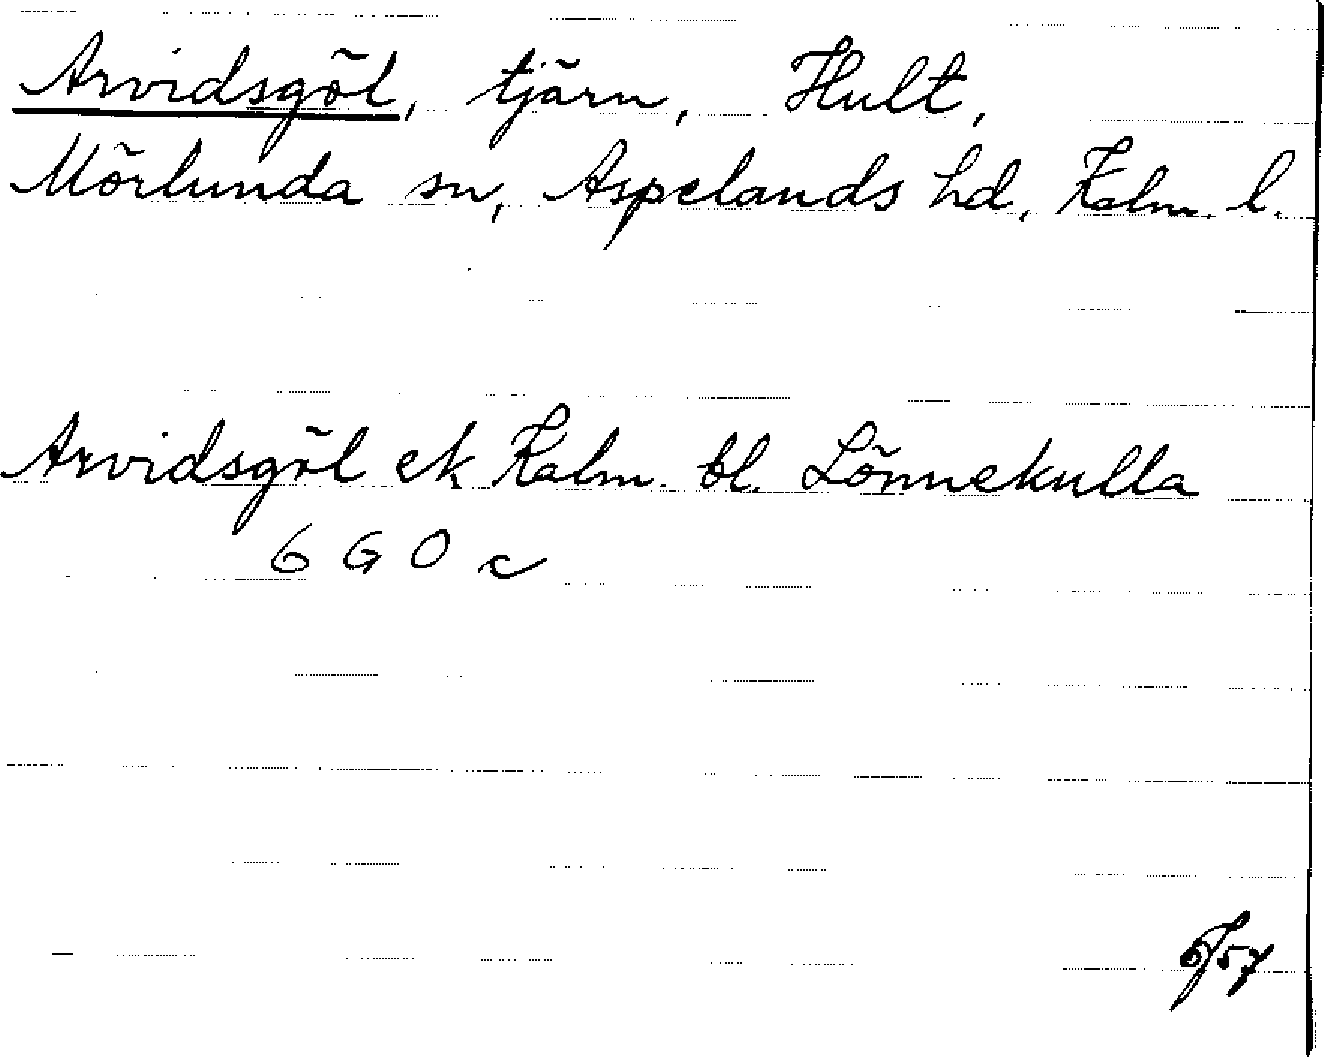 Arvidsgöl, tjärn, Hult,
Mörlunda sn, Aspelands hd, Kalm. l.
Arvidsgöl ek Kalm. bl. Lönnekulla
6 G 0 c
6/57